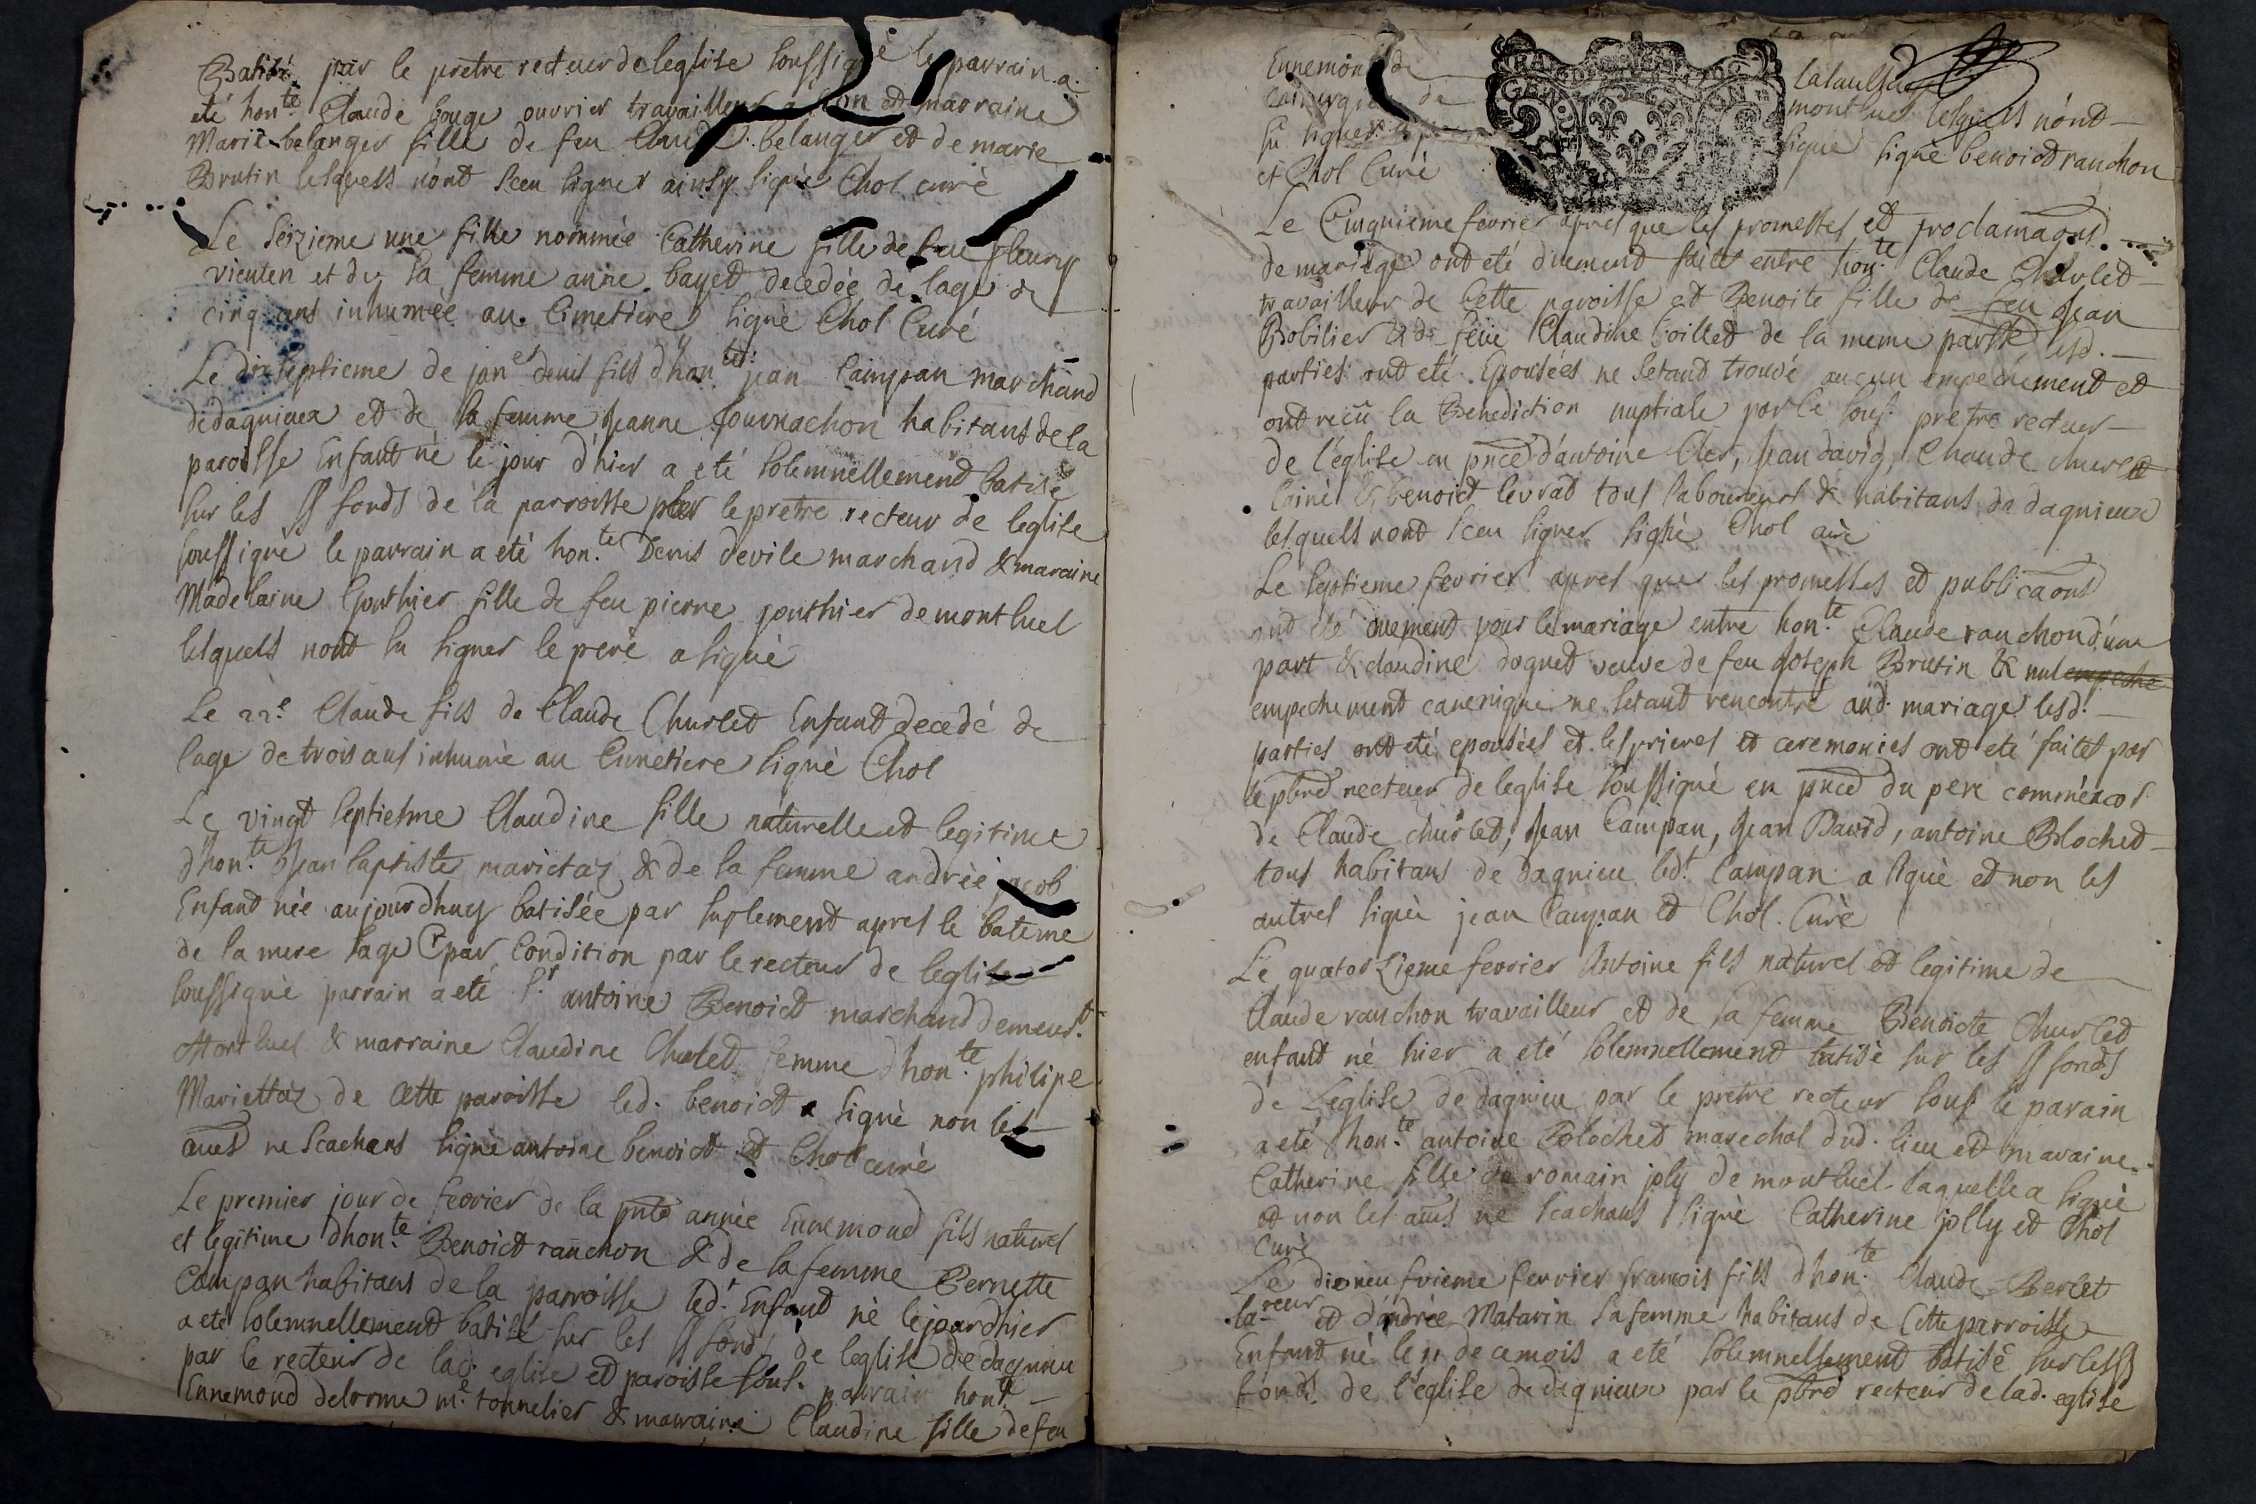 Batisé par le pretre recteur de leglise soussigné le parrain a
eté hon.te Claude bouge ouvrier travailleur a et marraine
Marie belanger fille de feu Claude belanger et de marie
Brutin lesquels n'ont sceu signer ainsy signé Chol curé
Le Seizieme une fille nommée Catherine fille de feu fleury
vienten et de sa femme anne bayet decedée de lage de
cinq ans inhumée au Cimetiere signé Chol Curé
Le dix septieme de jan.er denis fils d'hon.te jean Campan marchand
de dagnieux et de sa femme jeanne fournachon habitans de la
paroisse Enfant né le jour d'hier a été solemnellement batisé
sur les SS fonds de la parroisse par le pretre recteur de leglise
soussigné le parrain a eté hon.te Denis devile marchand & maraine
Madelaine Gonthier fille de feu pierre gonthier de montluel
lesquels nont su signer le pere a signé
Le 22.e Claude fils de Claude Churlet Enfant decedé de
lage de trois ans inhumé au Cimetiere signé Chol
Le vingt septiesme Claudine fille naturelle et legitime
d'hon.te Jean baptiste mariettaz & de sa femme andrée jacob
Enfant née aujourdhuy batisée par suplement apres le bateme
de la mere sage & par Condition par le recteur de leglise
soussigné parrain a eté S.r antoine Benoict marchand demeur.t
Montluel & marraine Claudine Churlet femme d'hon.te philipe
Mariettaz de Cette paroisse led. benoict a signé non les
aues ne scachans signé antoine benoict et Chol curé
Le premier jour de fevrier de la pnte année Ennemond fils naturel
et legitime dhon.te Benoict ranchon & de sa femme Bernette
Campan habitans de la parroisse led.t Enfant né le jour d'hier
a eté solemnellement batisé sur les SS fonds de leglise de dagnieu
par le recteur de lad. eglise et paroisse sous. parrain hon.te
Ennemond delorme m.e tonnelier & marraine Claudine fille de feu
Ennemond de
de montluel lesquels n'ont
su signer signé signé benoict ranchon
et Chol Curé
Le Cinquieme fevrier apres que les promesses et proclamaons
de mariage ont eté duement faite entre hon.te Claude Churlet
travailleur de Cette paroisse et Benoite fille de feu Jean
Bobilier & de feüe Claudine Coillet de la meme parsse lesd.
parties ont eté Epousées ne setant trouvé aucun empechement et
ont reçu la Benediction nuptiale par le sous. pretre recteur
de l'église en pnce d'antoine Cler, Jean david, Claude churlet
lainé & benoict levrat tous laboureurs & habitans de dagnieux
lesquels nont sceu signer signé Chol curé
Le septieme fevrier apres que les promesses et publicaons
ont eté duement pour le mariage entre hon.te Claude ranchon d'une
part & claudine doguet veuve de feu Joseph Brutin & nul empeche
empechement canonique ne setant rencontré aud. mariage lesd.
parties ont eté epousées et les prieres et ceremonies ont eté faites par
le pbre recteur de leglise soussigné en pnce du pere
de Claude churlet, Jean Campan, Jean David, antoine Blochet
tous habitans de dagnieu led.t Campan a signé et non les
autres signé jean Campan et Chol Curé
Le quatorzieme fevrier Antoine fils naturel et legitime de
Claude ranchon travailleur et de sa femme Benoicte Churlet
enfant né hier a eté solemnellement batisé sur les SS fonds
de Leglise de dagnieu par le pretre recteur sous. le parain
a eté hon.te antoine Blochet marechal dud. lieu et maraine
Catherine fille de romain joly de montluel laquelle a signé
et non les aues ne scachans signé Catherine jolly et Chol
Curé
Le dixneufvieme fevrier francois fils d'hon.te Claude Berlet
la.reur et d'andrée Matarin sa femme habitans de Cette parroisse
Enfant né le 11 de ce mois a eté solemnellement batisé sur les SS
fonds de l'eglise de dagnieux par le pbre recteur de lad. eglise